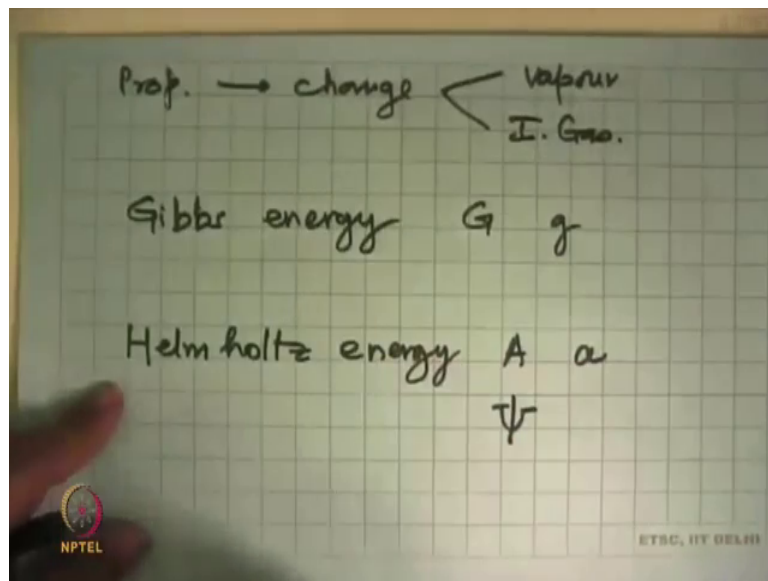 Prop. → change < vapour
I. Gas.
Gibbs energy G g
Helmholtz energy A a
Ψ
NPTEL
ETSC, IIT DELHI